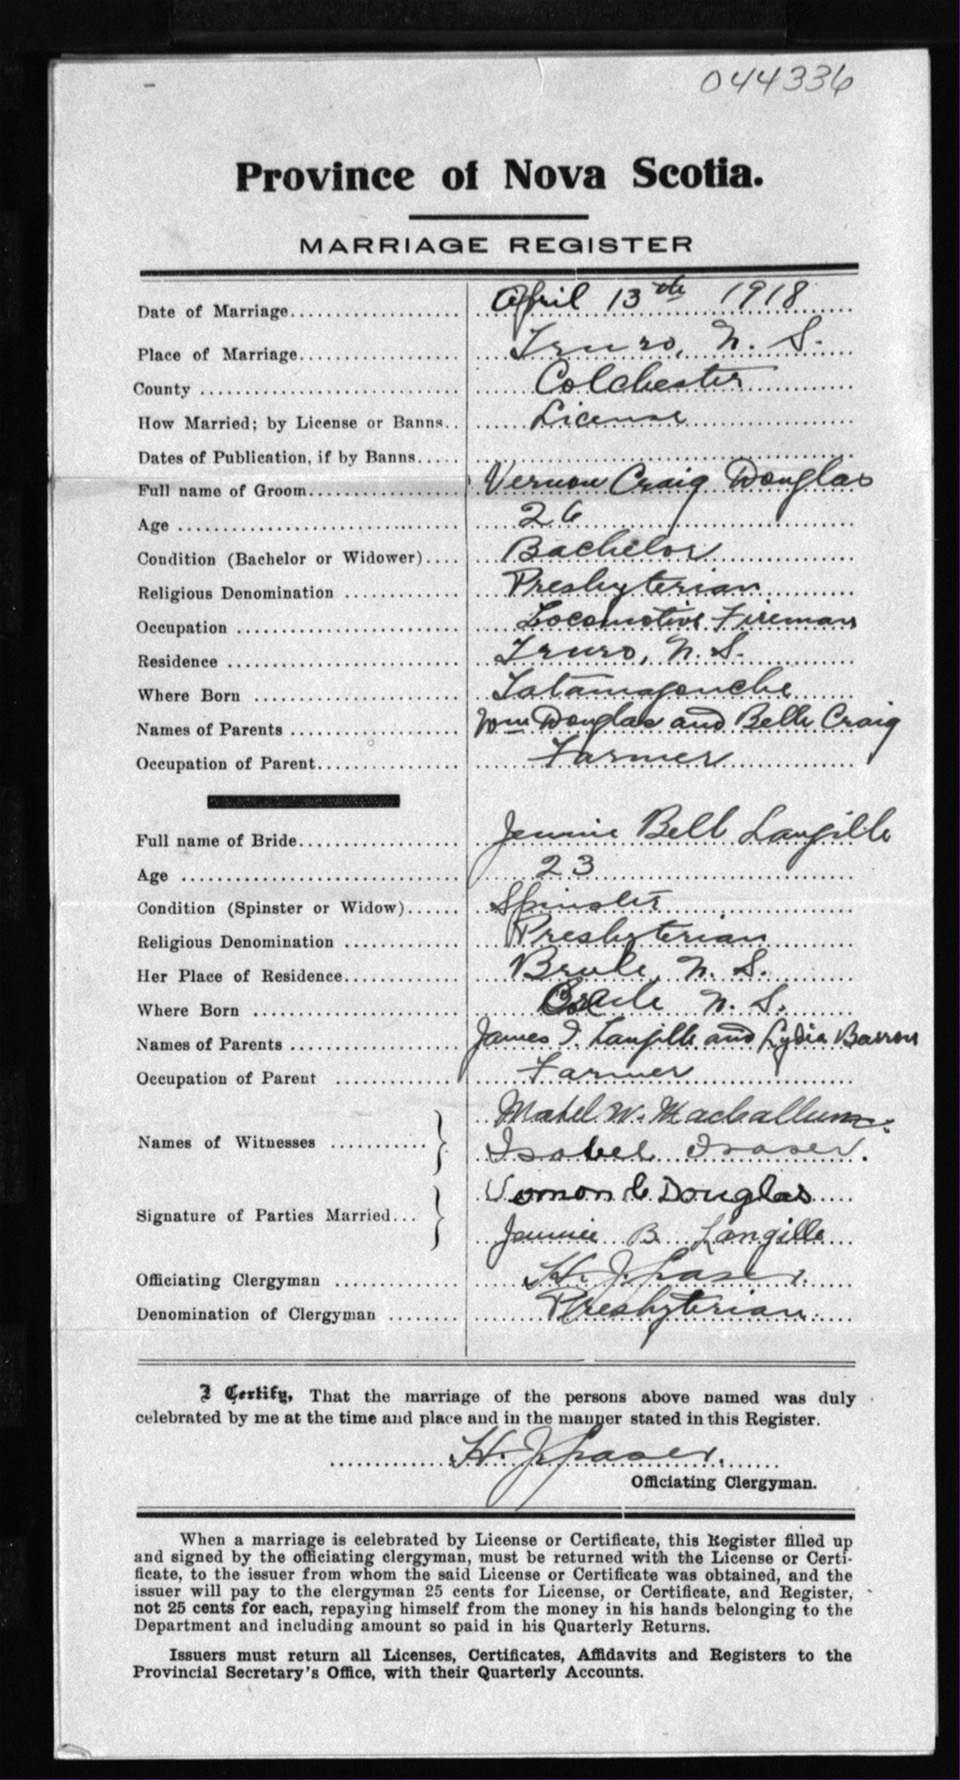 044336
Province of Nova Scotia.
MARRIAGE REGISTER
Date of Marriage.................... April 13th 1918
Place of Marriage.................. Truro, N. S.
County ............................. Colchester
How Married; by License or Banns.. License
Dates of Publication, if by Banns.....
Full name of Groom.................. Vernon Craig Douglas
Age ................................ 26
Condition (Bachelor or Widower).... Bachelor
Religious Denomination ............. Presbyterian
Occupation ......................... Locomotive Fireman
Residence .......................... Truro, N. S.
Where Born ......................... Tatamagouche
Names of Parents ................... Wm Douglas and Belle Craig
Occupation of Parent................ Farmer
Full name of Bride.................. Jennie Bell Langille
Age ................................ 23
Condition (Spinster or Widow)...... Spinster
Religious Denomination ............. Presbyterian
Her Place of Residence.............. Brule, N. S.
Where Born ......................... Brule N. S.
Names of Parents ................... James I. Langille and Lydia Barron
Occupation of Parent ............... Farmer
Mabel W. MacCallum.
Names of Witnesses ...........
Isabel Fraser.
Vernon C Douglas
Signature of Parties Married...
Jennie B Langille
Officiating Clergyman .............. H. J. Fraser.
Denomination of Clergyman ........ Presbyterian
I Certify, That the marriage of the persons above named was duly
celebrated by me at the time and place and in the manner stated in this Register.
H. J. Fraser.
Officiating Clergyman.
When a marriage is celebrated by License or Certificate, this Register filled up
and signed by the officiating clergyman, must be returned with the License or Certi-
ficate, to the issuer from whom the said License or Certificate was obtained, and the
issuer will pay to the clergyman 25 cents for License, or Certificate, and Register,
not 25 cents for each, repaying himself from the money in his hands belonging to the
Department and including amount so paid in his Quarterly Returns.
Issuers must return all Licenses, Certificates, Affidavits and Registers to the
Provincial Secretary's Office, with their Quarterly Accounts.